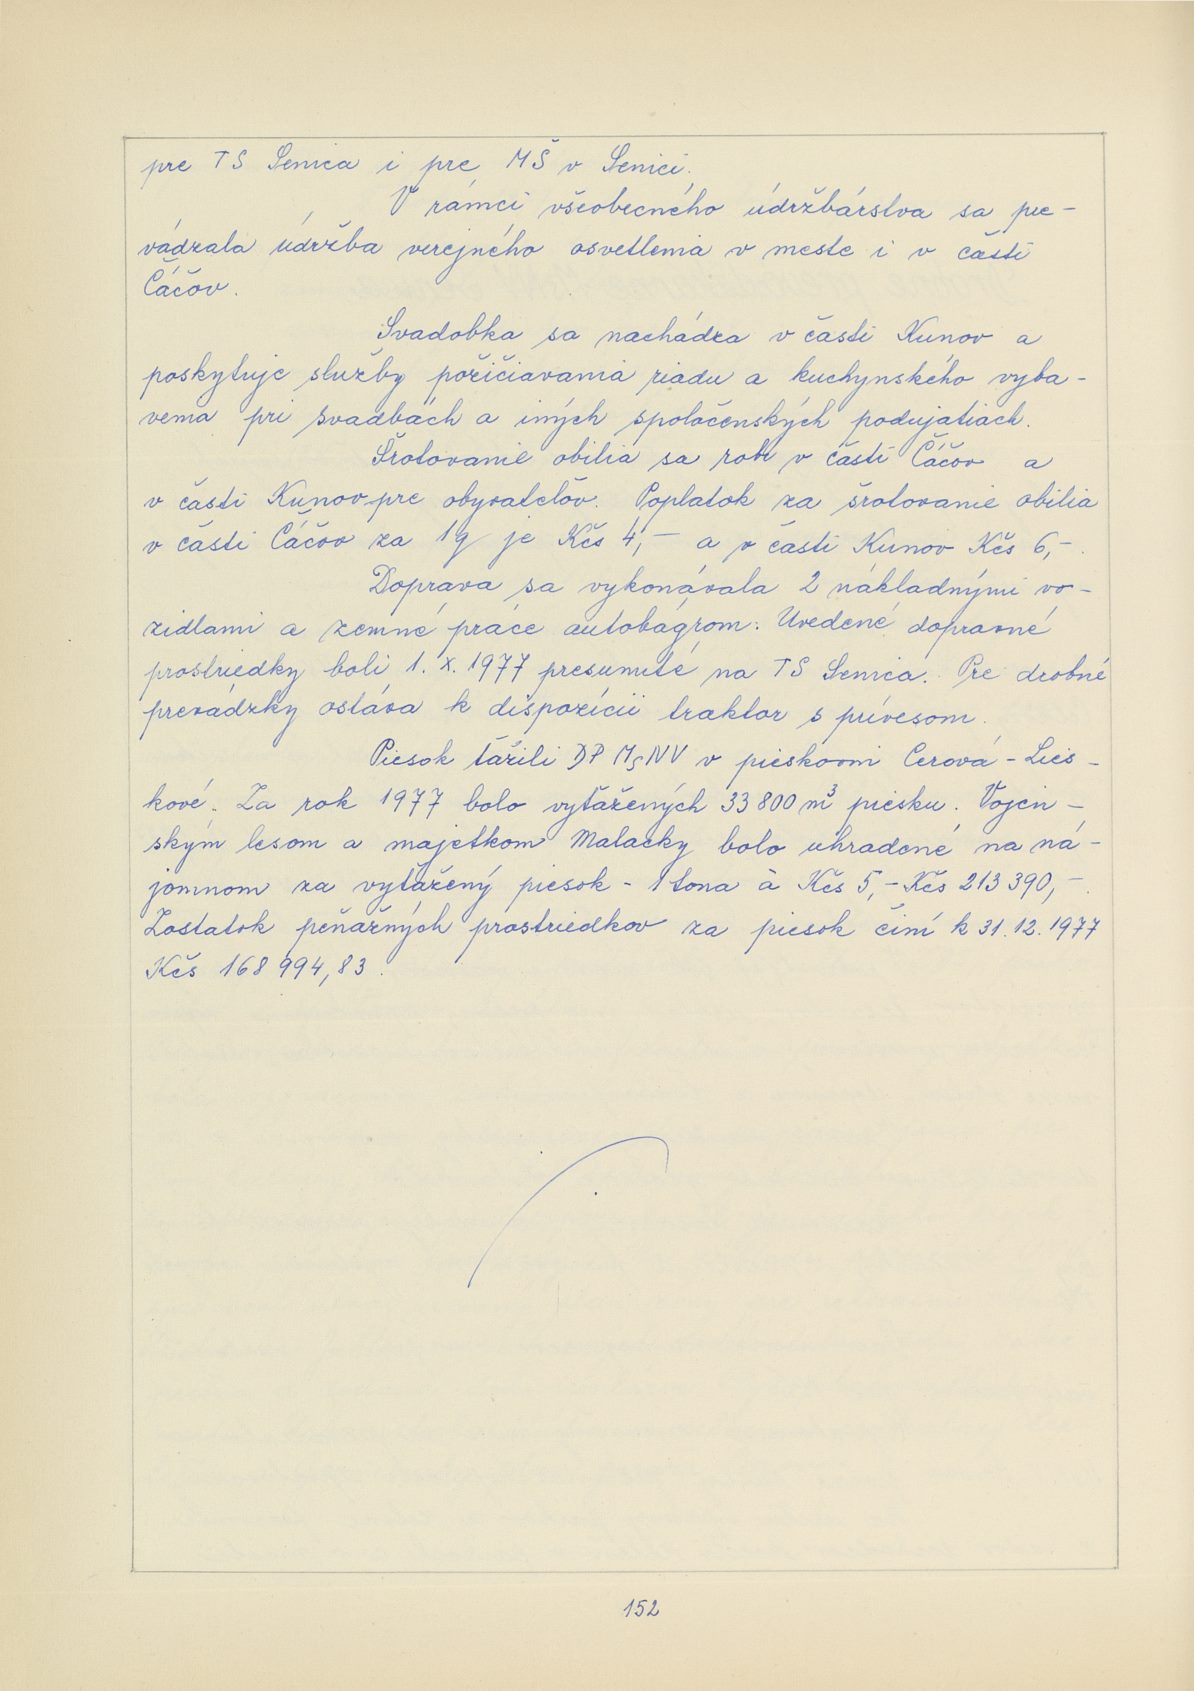 pre TS Senica i pre MŠ v Senici.
V rámci všeobecného údržbárstva sa pre-
vádzala údržba verejného osvetlenia v meste i v časti
Čáčov.
Svadobka sa nachádza v časti Kunov a
poskytuje služby požičiavania riadu a kuchynského vyba-
venia pri svadbách a iných spoločenských podujatiach.
Šrotovanie obilia sa robí v časti Čáčov a
v časti Kunov pre obyvateľov. Poplatok za šrotovanie obilia
v časti Čáčov za 1q je Kčs 4,- a v časti Kunov Kčs 6,-.
Doprava sa vykonávala 2 nákladnými vo-
zidlami a zemné práce autobágrom. Uvedené dopravné
prostriedky boli 1. X. 1977 presunuté na TS Senica. Pre drobné
prevádzky ostáva k dišpozícii traktor s prívesom.
Piesok ťažili DP MsNV v pieskovni Cerová - Lies-
kové. Za rok 1977 bolo vyťažených 33 800 m³ piesku. Vojen-
ským lesom a majetkom Malacky bolo uhradené na ná-
jomnom za vyťažený piesok - 1 tona à Kčs 5,- Kčs 213 390,-.
Zostatok peňažných prostriedkov za piesok činí k 31.12.1977
Kčs 168 994,83.
152